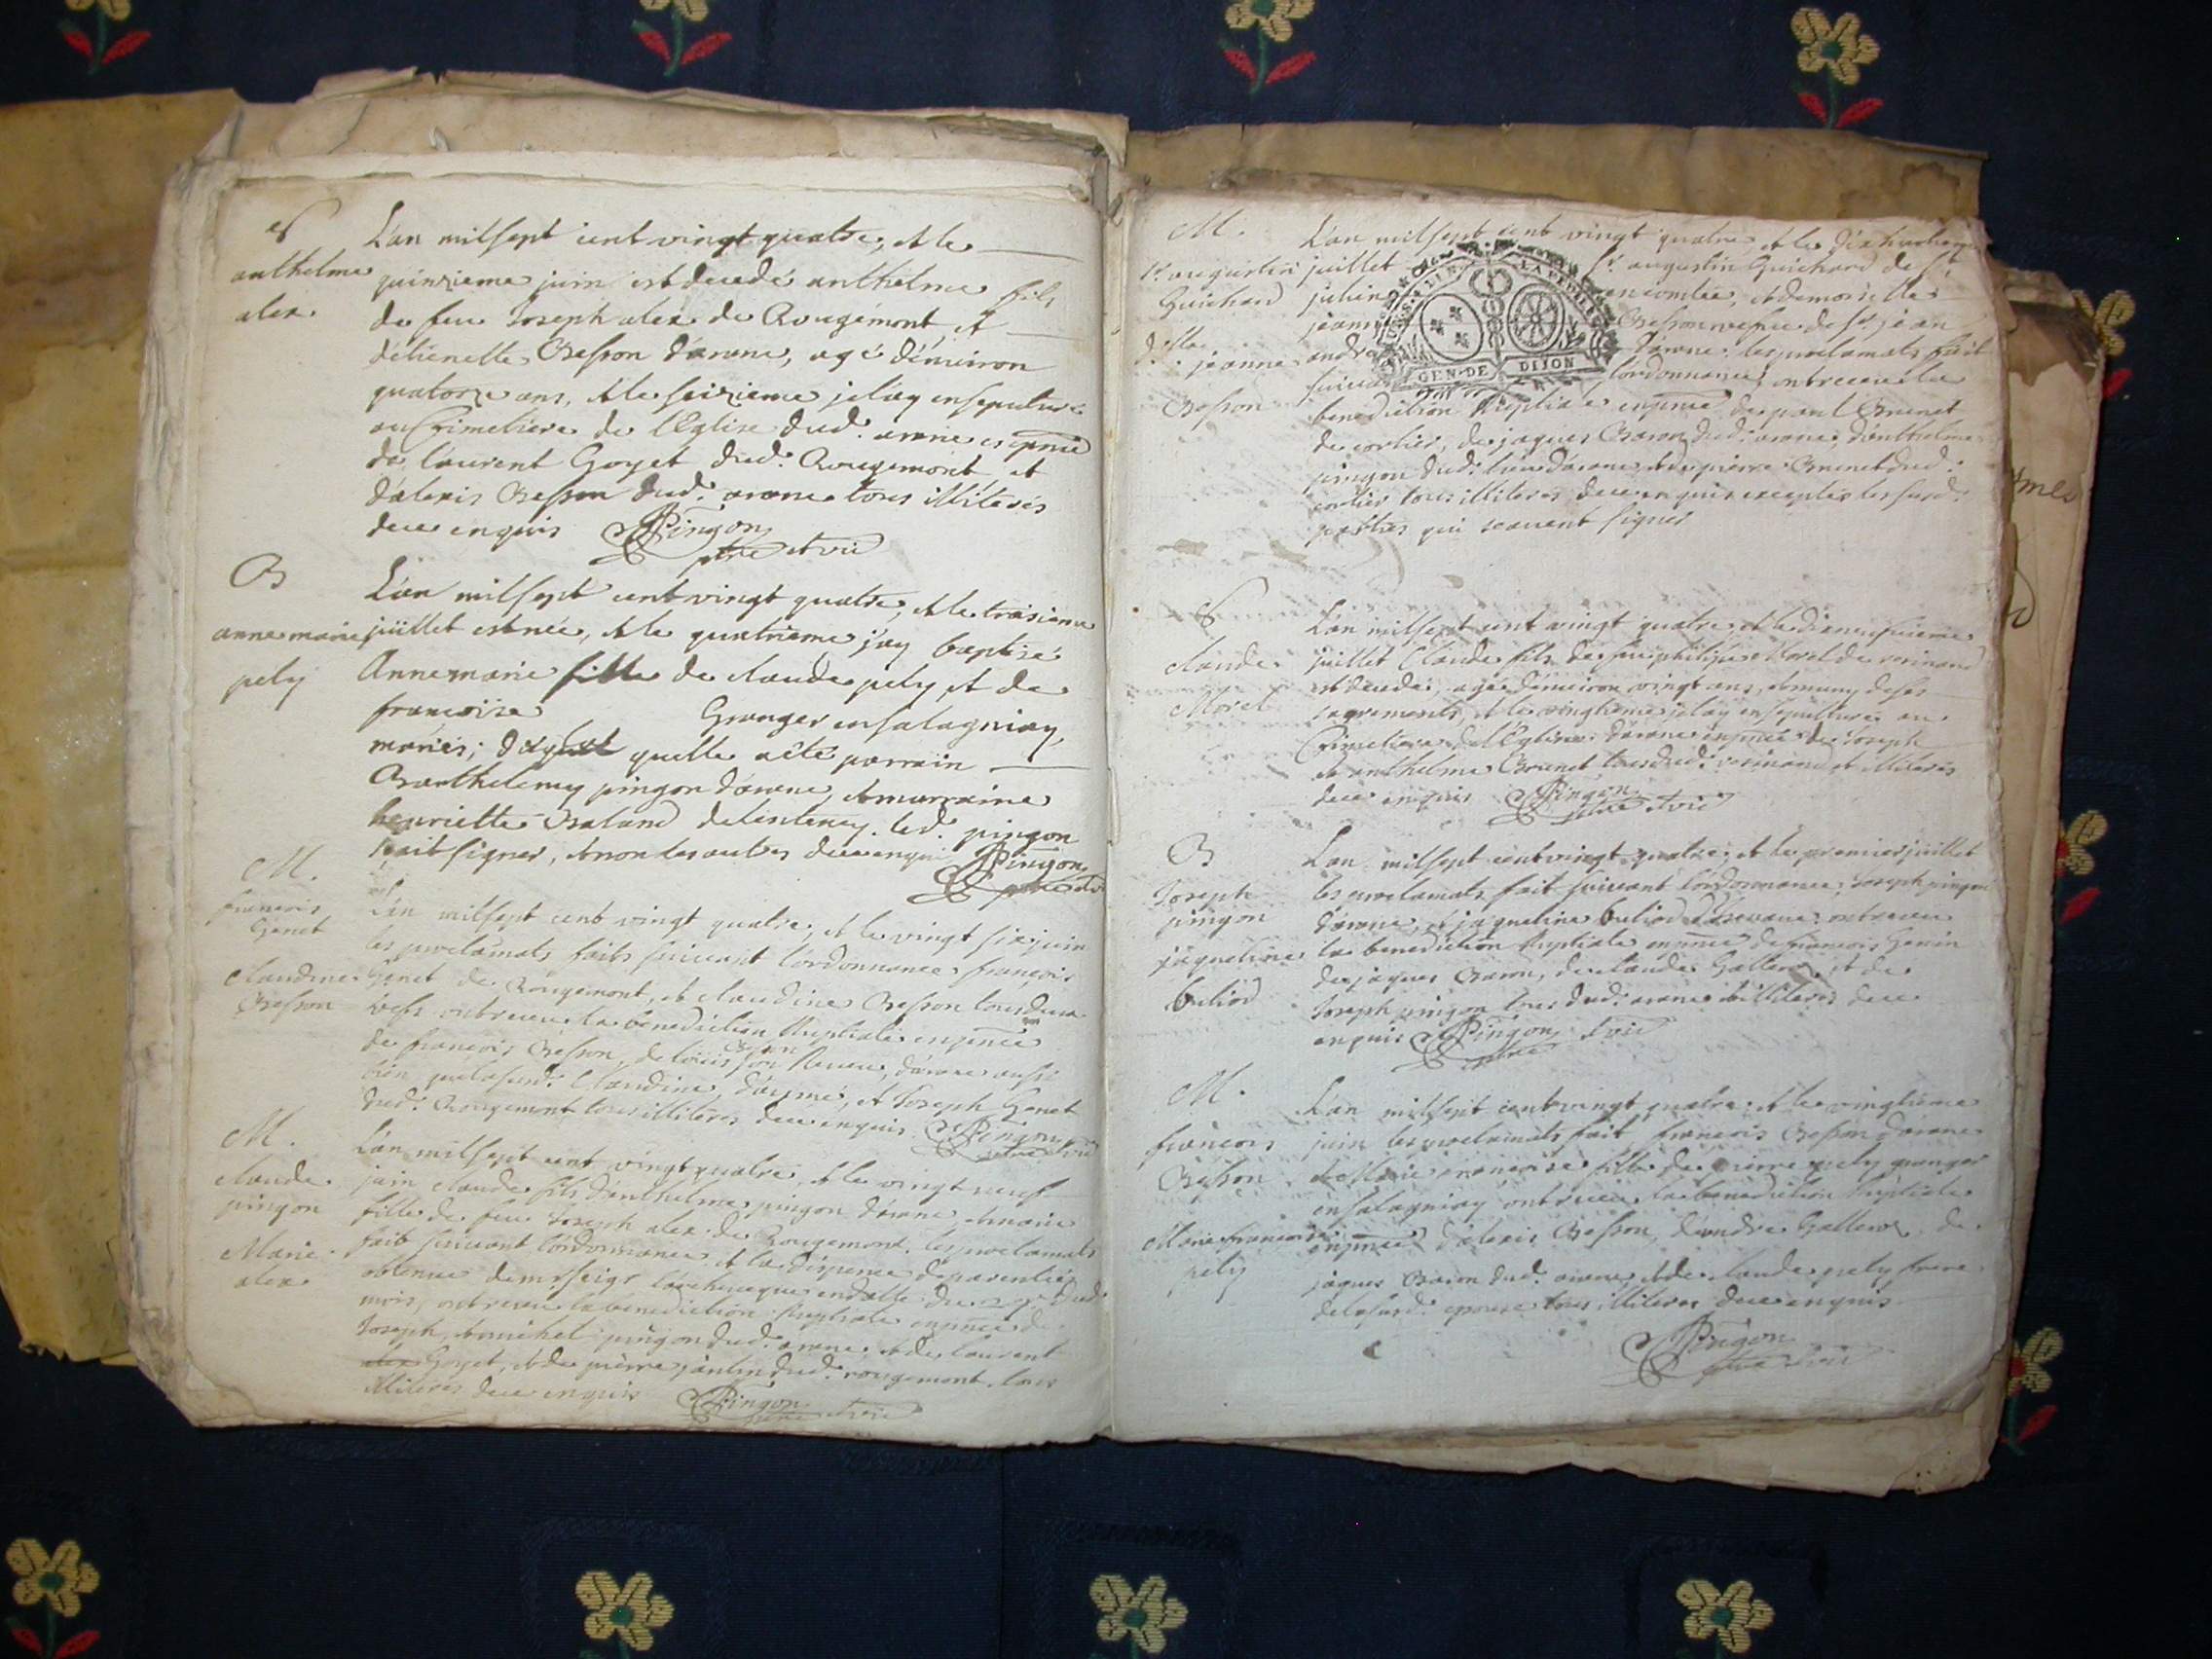 S
anthelme
alex
L'an mil sept cent vingt quatre, et le
quinzieme juin est decedé anthelme fils
de feu Joseph alex de Rougemont, et
d'etienette Besson d'arane, agé d'environ
quatorze ans, et le seizieme je l'ay ensepulturé
au Cimetiere de l'Eglise dud. arane en pnce
de laurent Goyet dud. Rougemont et
d'alexis Besson dud. arane tous illiterés
de ce enquis Pingon
ptre et vic
B
anne marie
pely
L'an mil sept cent vingt quatre, et le troisieme
juillet est née, et le quatrieme j'ay baptisé
Annemarie fille de claude pely et de
francoise Granger en salagniay,
mariés; quelle a été parrain
Barthelemy pingon d'arane, et marraine
henriette Baland de lentenay. led. pingon
scait signer, et non les autres de ce enquis Pingon
ptre et vic
M.
francois
Genet
claudine
Besson
L'an mil sept cent vingt quatre, et le vingt six juin
les proclamats faits suivant l'ordonnance, francois
Genet de Rougemont, et claudine Besson tous deux
ont receu la benediction Nuptiale en pnce
de francois Besson, de louis Besson son Neveu, d'arane aussi
bien que lasusd. Claudine, d'aymé, et Joseph Genet
dud. Rougemont tous illiterés de ce enquis. Pingon
ptre et vic
M.
claude
pingon
Marie
alex
L'an mil sept cent vingt quatre, et le vingt neuf
juin claude fils d'anthelme pingon d'arane, et marie
fille de feu Joseph alex de Rougemont, les proclamats
fait suivant l'ordonnance, et la dispense de parentée
obtenue de mgr seigr l'archeveque en datte du 27e dud.
mois, ont receu la benediction Nuptiale en pnce de
Joseph, et michel pingon dud. arane, et de laurent
Goyet, et de pierre jantin dud. rougemont, tous
illiterés de ce enquis Pingon
ptre et vic
M.
Sr. augustin
Guichard
dlle
jeanne
Besson
L'an mil sept cent vingt quatre, et le dix huitieme
juillet Sr. augustin Guichard de St.
julin en comtée, et demoiselle
jeanne Besson vefve de Sr. jean
andré d'arane, les proclamats fait
suivant l'ordonnance, ont receu la
benediction Nuptiale en pnce de paul Brunet
de corlier, de jaques Baron dud. arane, d'anthelme
pingon dud. lieu d'arane, et de pierre Brunet dud.
corlier tous illiterés de ce enquis exceptés les susd.
parties qui scavent signer
GEN. DE DIJON
S
claude
Morel
L'an mil sept cent vingt quatre, et le dixneufvieme
juillet Claude fils de feu philipe Morel de resinand
est decedé, agé d'environ vingt ans, et muny de ses
sacrements, et le vingtieme je l'ay ensepulturé au
Cimetiere de l'Eglise d'arane en pnce de Joseph
et anthelme Brunet tous dud. resinand et illiterés
de ce enquis Pingon
ptre et vic
B
Joseph
pingon
jaqueline
buliod
L'an mil sept cent vingt quatre, et le premier juillet
les proclamats fait suivant l'ordonnance, Joseph pingon
d'arane, et jaqueline buliod ont receu
la benediction Nuptiale en pnce de francois Genin
de jaques Baron, de claude Gallera, et de
Joseph pingon tous dud. arane et illiterés de ce
enquis Pingon
ptre et vic
M.
francois
Besson
Marie francoise
pely
L'an mil sept cent vingt quatre, et le vingtieme
juin les proclamats fait, francois Besson d'arane
et Marie francoise fille de pierre pely granger
en salagniay ont receu la benediction Nuptiale
en pnce d'alexis Besson, d'andre Gallera, de
jaques Baron dud. arane, et de claude pely frere
de lasusd. epouse tous illiterés de ce enquis
Pingon
ptre et vic